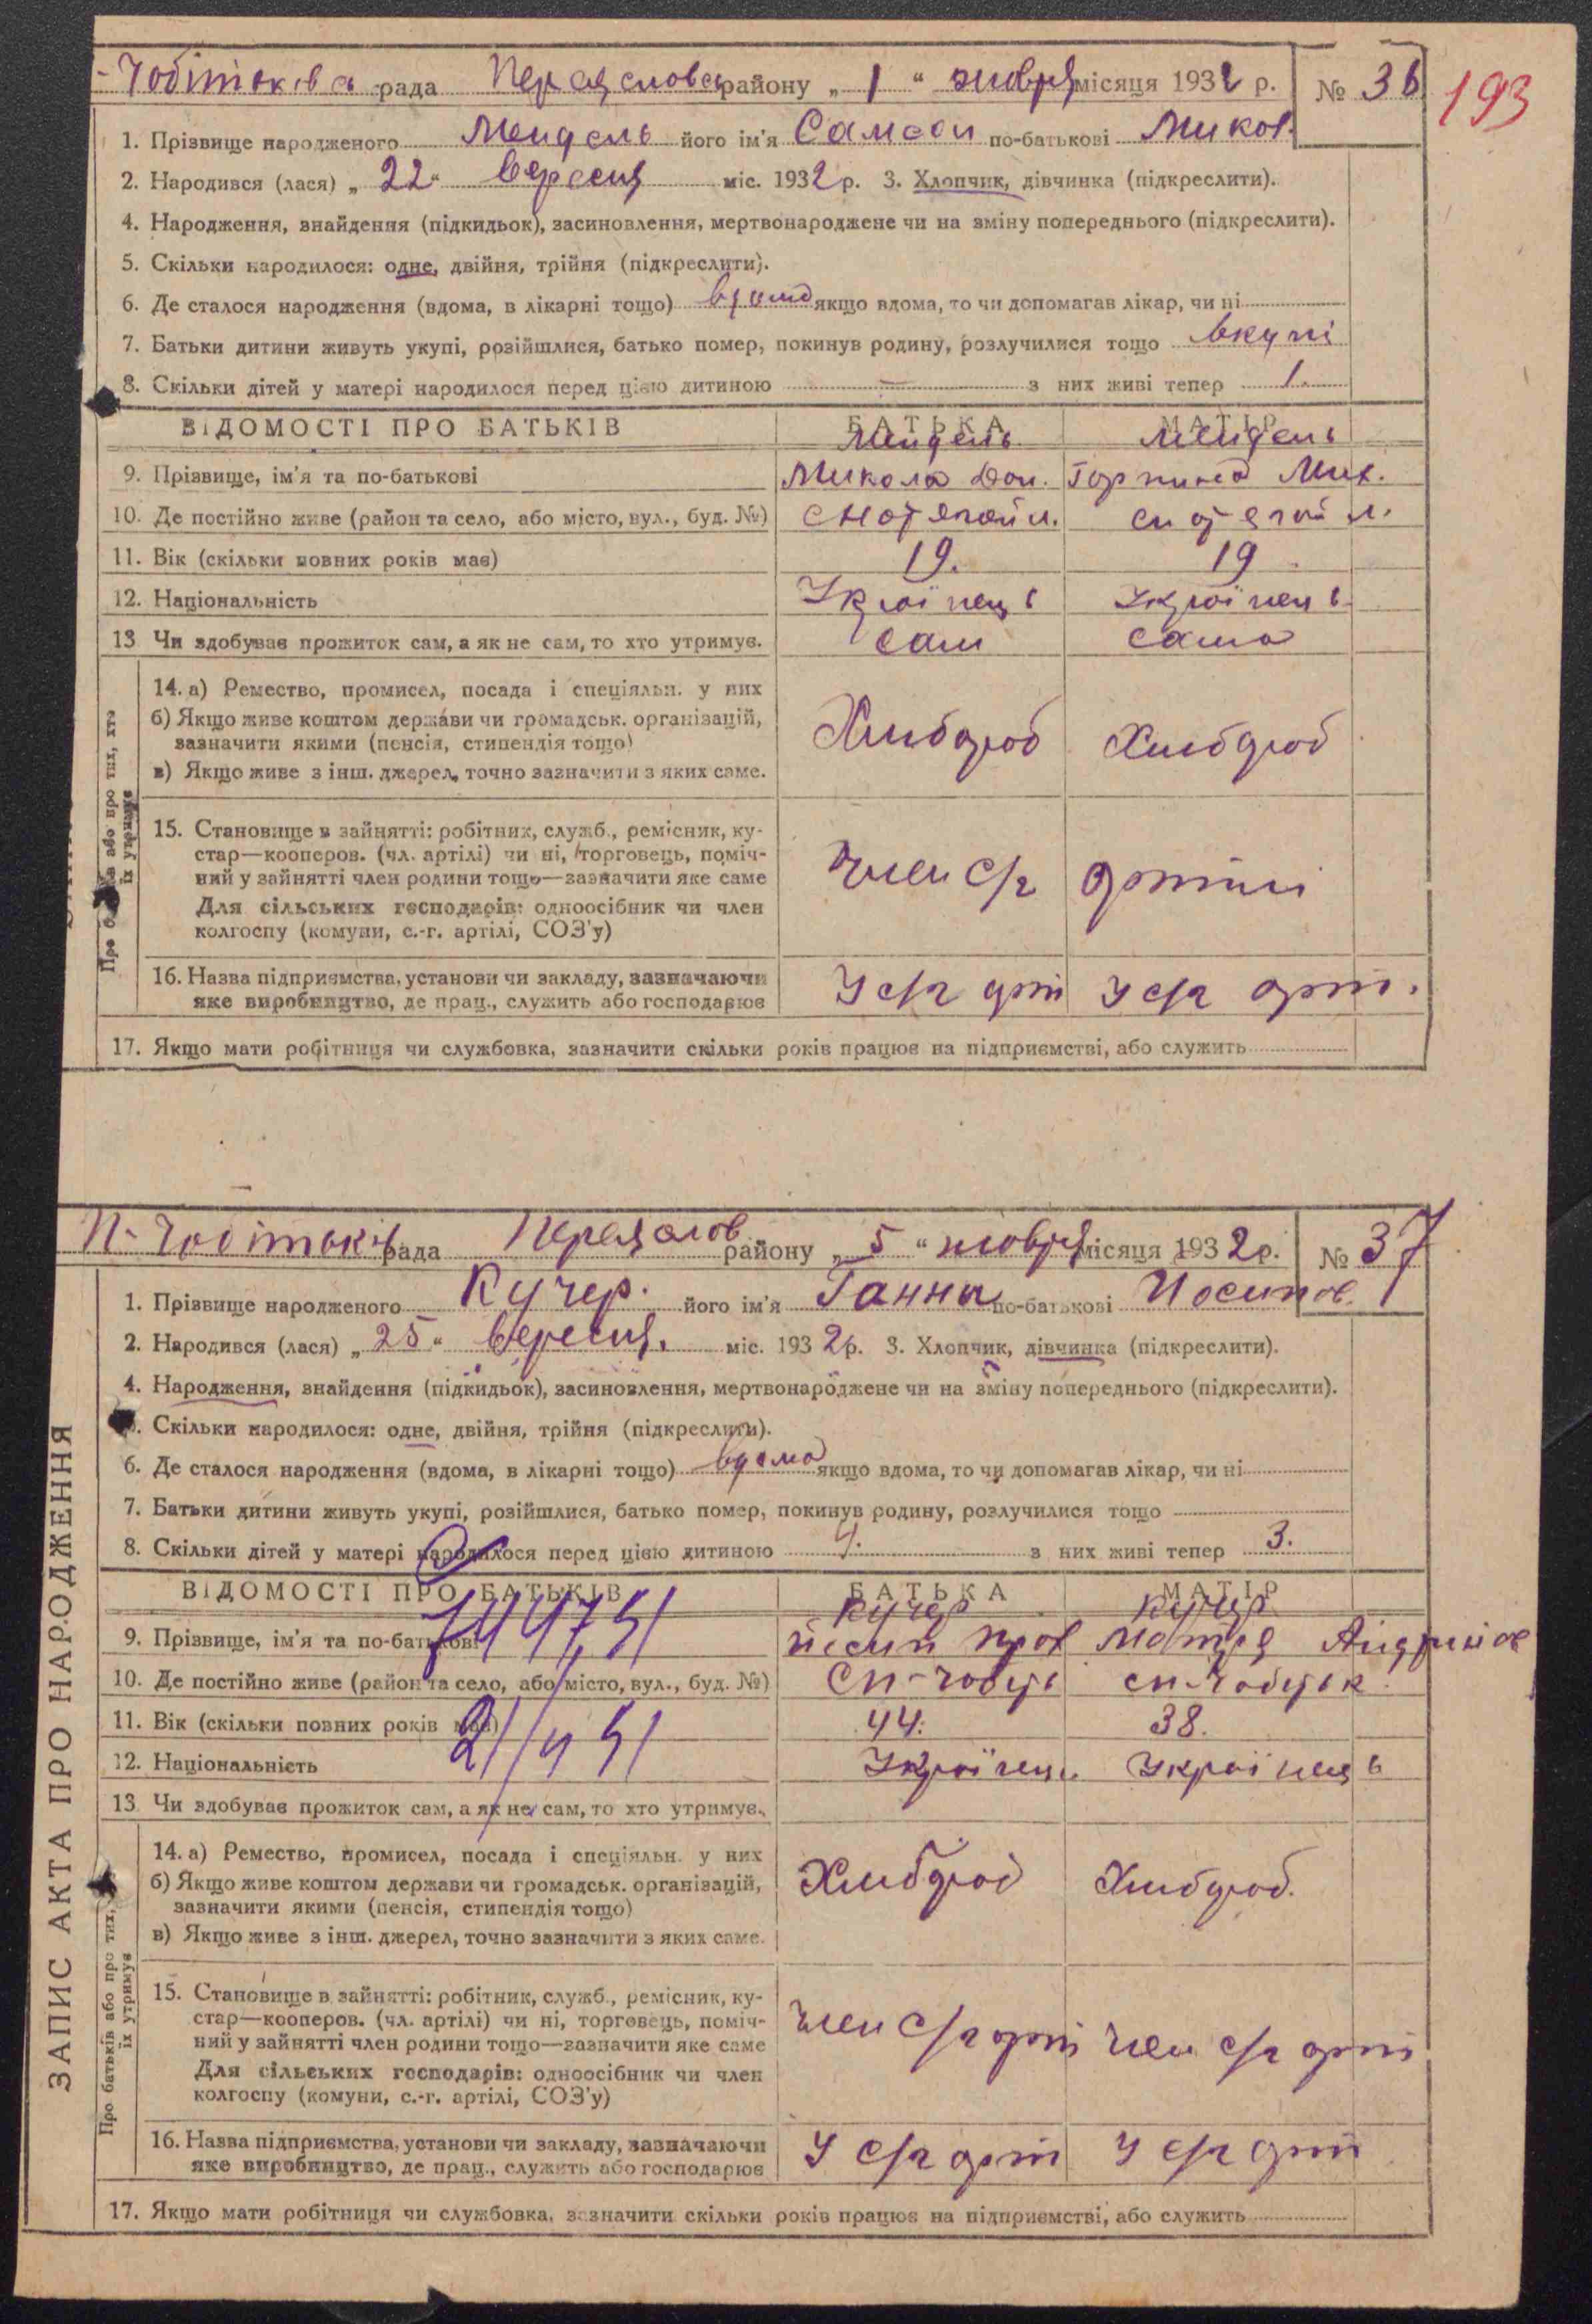 -Чобітьківська рада Переяславськ району „ 1 “ жовтня місяця 1932 р. № 36
193
1. Прізвище народженого Мендель його ім'я Самсон по-батькові Микол.
2. Народився (лася) „ 22 “ вересня міс. 1932 р. 3. Хлопчик, дівчинка (підкреслити).
4. Народження, знайдення (підкидьок), засиновлення, мертвонароджене чи на зміну попереднього (підкреслити).
5. Скільки народилося: одне, двійня, трійня (підкреслити).
6. Де сталося народження (вдома, в лікарні тощо) вдома якщо вдома, то чи допомагав лікар, чи ні
7. Батьки дитини живуть укупі, розійшлися, батько помер, покинув родину, розлучилися тощо вкупі
8. Скільки дітей у матері народилося перед цією дитиною — з них живі тепер 1.
ВІДОМОСТІ ПРО БАТЬКІВ БАТЬКА МАТІР
Мендель Мендель
9. Прізвище, ім'я та по-батькові Микола Горпина Мих.
10. Де постійно живе (район та село, або місто, вул., буд. №)
11. Вік (скільки повних років має) 19. 19
12. Національність Українець Українець
13 Чи здобуває прожиток сам, а як не сам, то хто утримує. сам сама
14. а) Ремество, промисел, посада і спеціяльн. у них
б) Якщо живе коштом держави чи громадськ. організацій,
зазначити якими (пенсія, стипендія тощо) Хлібороб Хлібороб
в) Якщо живе з інш. джерел, точно зазначити з яких саме.
Про батьків або про тих, хто їх утримує
15. Становище в зайнятті: робітник, служб., ремісник, ку-
стар—кооперов. (чл. артілі) чи ні, торговець, поміч-
ний у зайнятті член родини тощо—зазначити яке саме член с/г артілі
Для сільських господарів: одноосібник чи член
колгоспу (комуни, с.-г. артілі, СОЗ'у)
16. Назва підприємства, установи чи закладу, зазначаючи
яке виробництво, де прац., служить або господарює У с/г арт У с/г арт.
17. Якщо мати робітниця чи службовка, зазначити скільки років працює на підприємстві, або служить
П-Чобітьків рада Переяслов району „ 5 “ жовтня місяця 1932 р. № 37
1. Прізвище народженого Кучер. його ім'я Ганна по-батькові Йосипов.
2. Народився (лася) „ 25 “ вересня. міс. 1932 р. 3. Хлопчик, дівчинка (підкреслити).
4. Народження, знайдення (підкидьок), засиновлення, мертвонароджене чи на зміну попереднього (підкреслити).
5. Скільки народилося: одне, двійня, трійня (підкреслити).
6. Де сталося народження (вдома, в лікарні тощо) вдома якщо вдома, то чи допомагав лікар, чи ні
7. Батьки дитини живуть укупі, розійшлися, батько помер, покинув родину, розлучилися тощо
8. Скільки дітей у матері народилося перед цією дитиною 4. з них живі тепер 3.
ВІДОМОСТІ ПРО БАТЬКІВ БАТЬКА МАТІР
Кучер Кучер
9. Прізвище, ім'я та по-батькові Йосип Прок Мотря Андріїв
10. Де постійно живе (район та село, або місто, вул., буд. №)
11. Вік (скільки повних років має) 44. 38.
12. Національність Українець Українець
13 Чи здобуває прожиток сам, а як не сам, то хто утримує.
14. а) Ремество, промисел, посада і спеціяльн. у них
б) Якщо живе коштом держави чи громадськ. організацій,
зазначити якими (пенсія, стипендія тощо) Хлібороб Хлібороб.
в) Якщо живе з інш. джерел, точно зазначити з яких саме.
Про батьків або про тих, їх утримує
15. Становище в зайнятті: робітник, служб., ремісник, ку-
стар—кооперов. (чл. артілі) чи ні, торговець, поміч-
ний у зайнятті член родини тощо—зазначити яке саме член с/г арті член с/г арті
Для сільських господарів: одноосібник чи член
колгоспу (комуни, с.-г. артілі, СОЗ'у)
16. Назва підприємства, установи чи закладу, зазначаючи
яке виробництво, де прац., служить або господарює У с/г арт У с/г арт
17. Якщо мати робітниця чи службовка, зазначити скільки років працює на підприємстві, або служить
ЗАПИС АКТА ПРО НАРОДЖЕННЯ